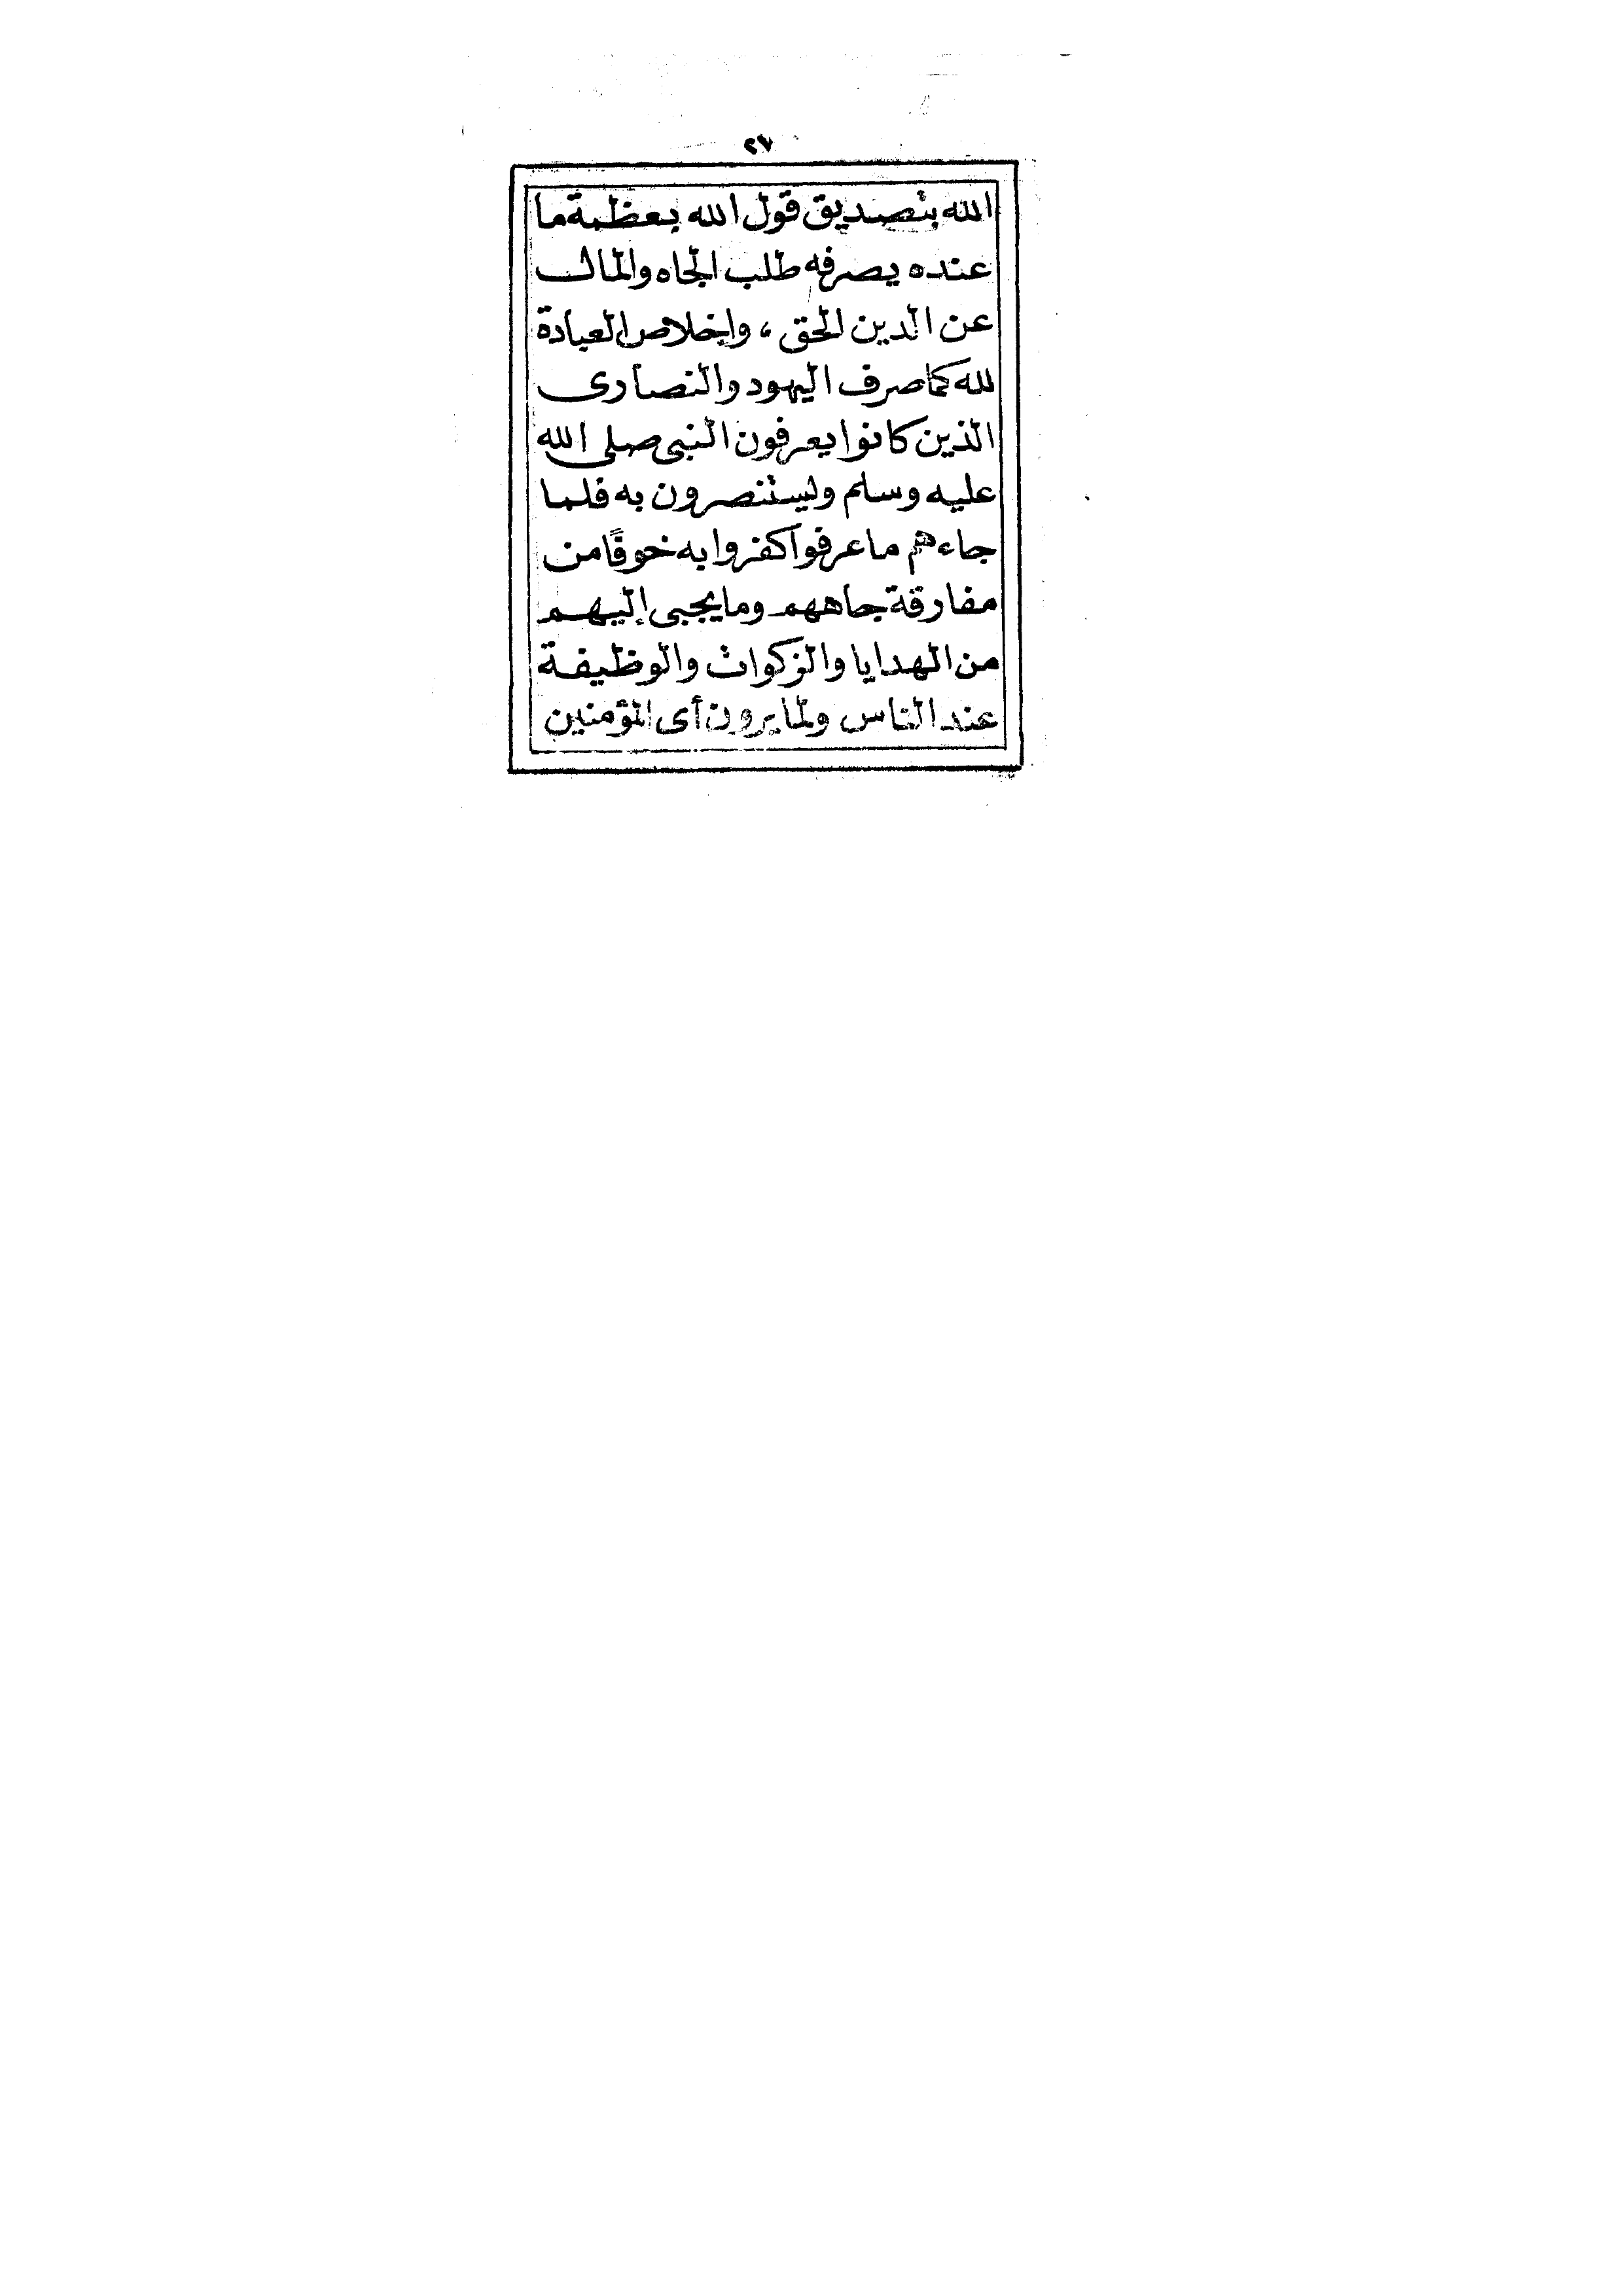 ٢٧
الله بتصديق قول الله بعظمة ما
عنده يصرفه طلب الجاه والمال
عن الدين الحق ، وإخلاص العبادة
لله كما صرف اليهود والنصارى
الذين كانوا يعرفون النبى صلى الله
عليه وسلم وليستنصرون به فلما
جاءهم ما عرفوا كفروا به خوفًا من
مفارقة جاههم وما يجبى إليهم
من الهدايا والزكوات والوظيفة
عند الناس ولما يرون أى المؤمنين